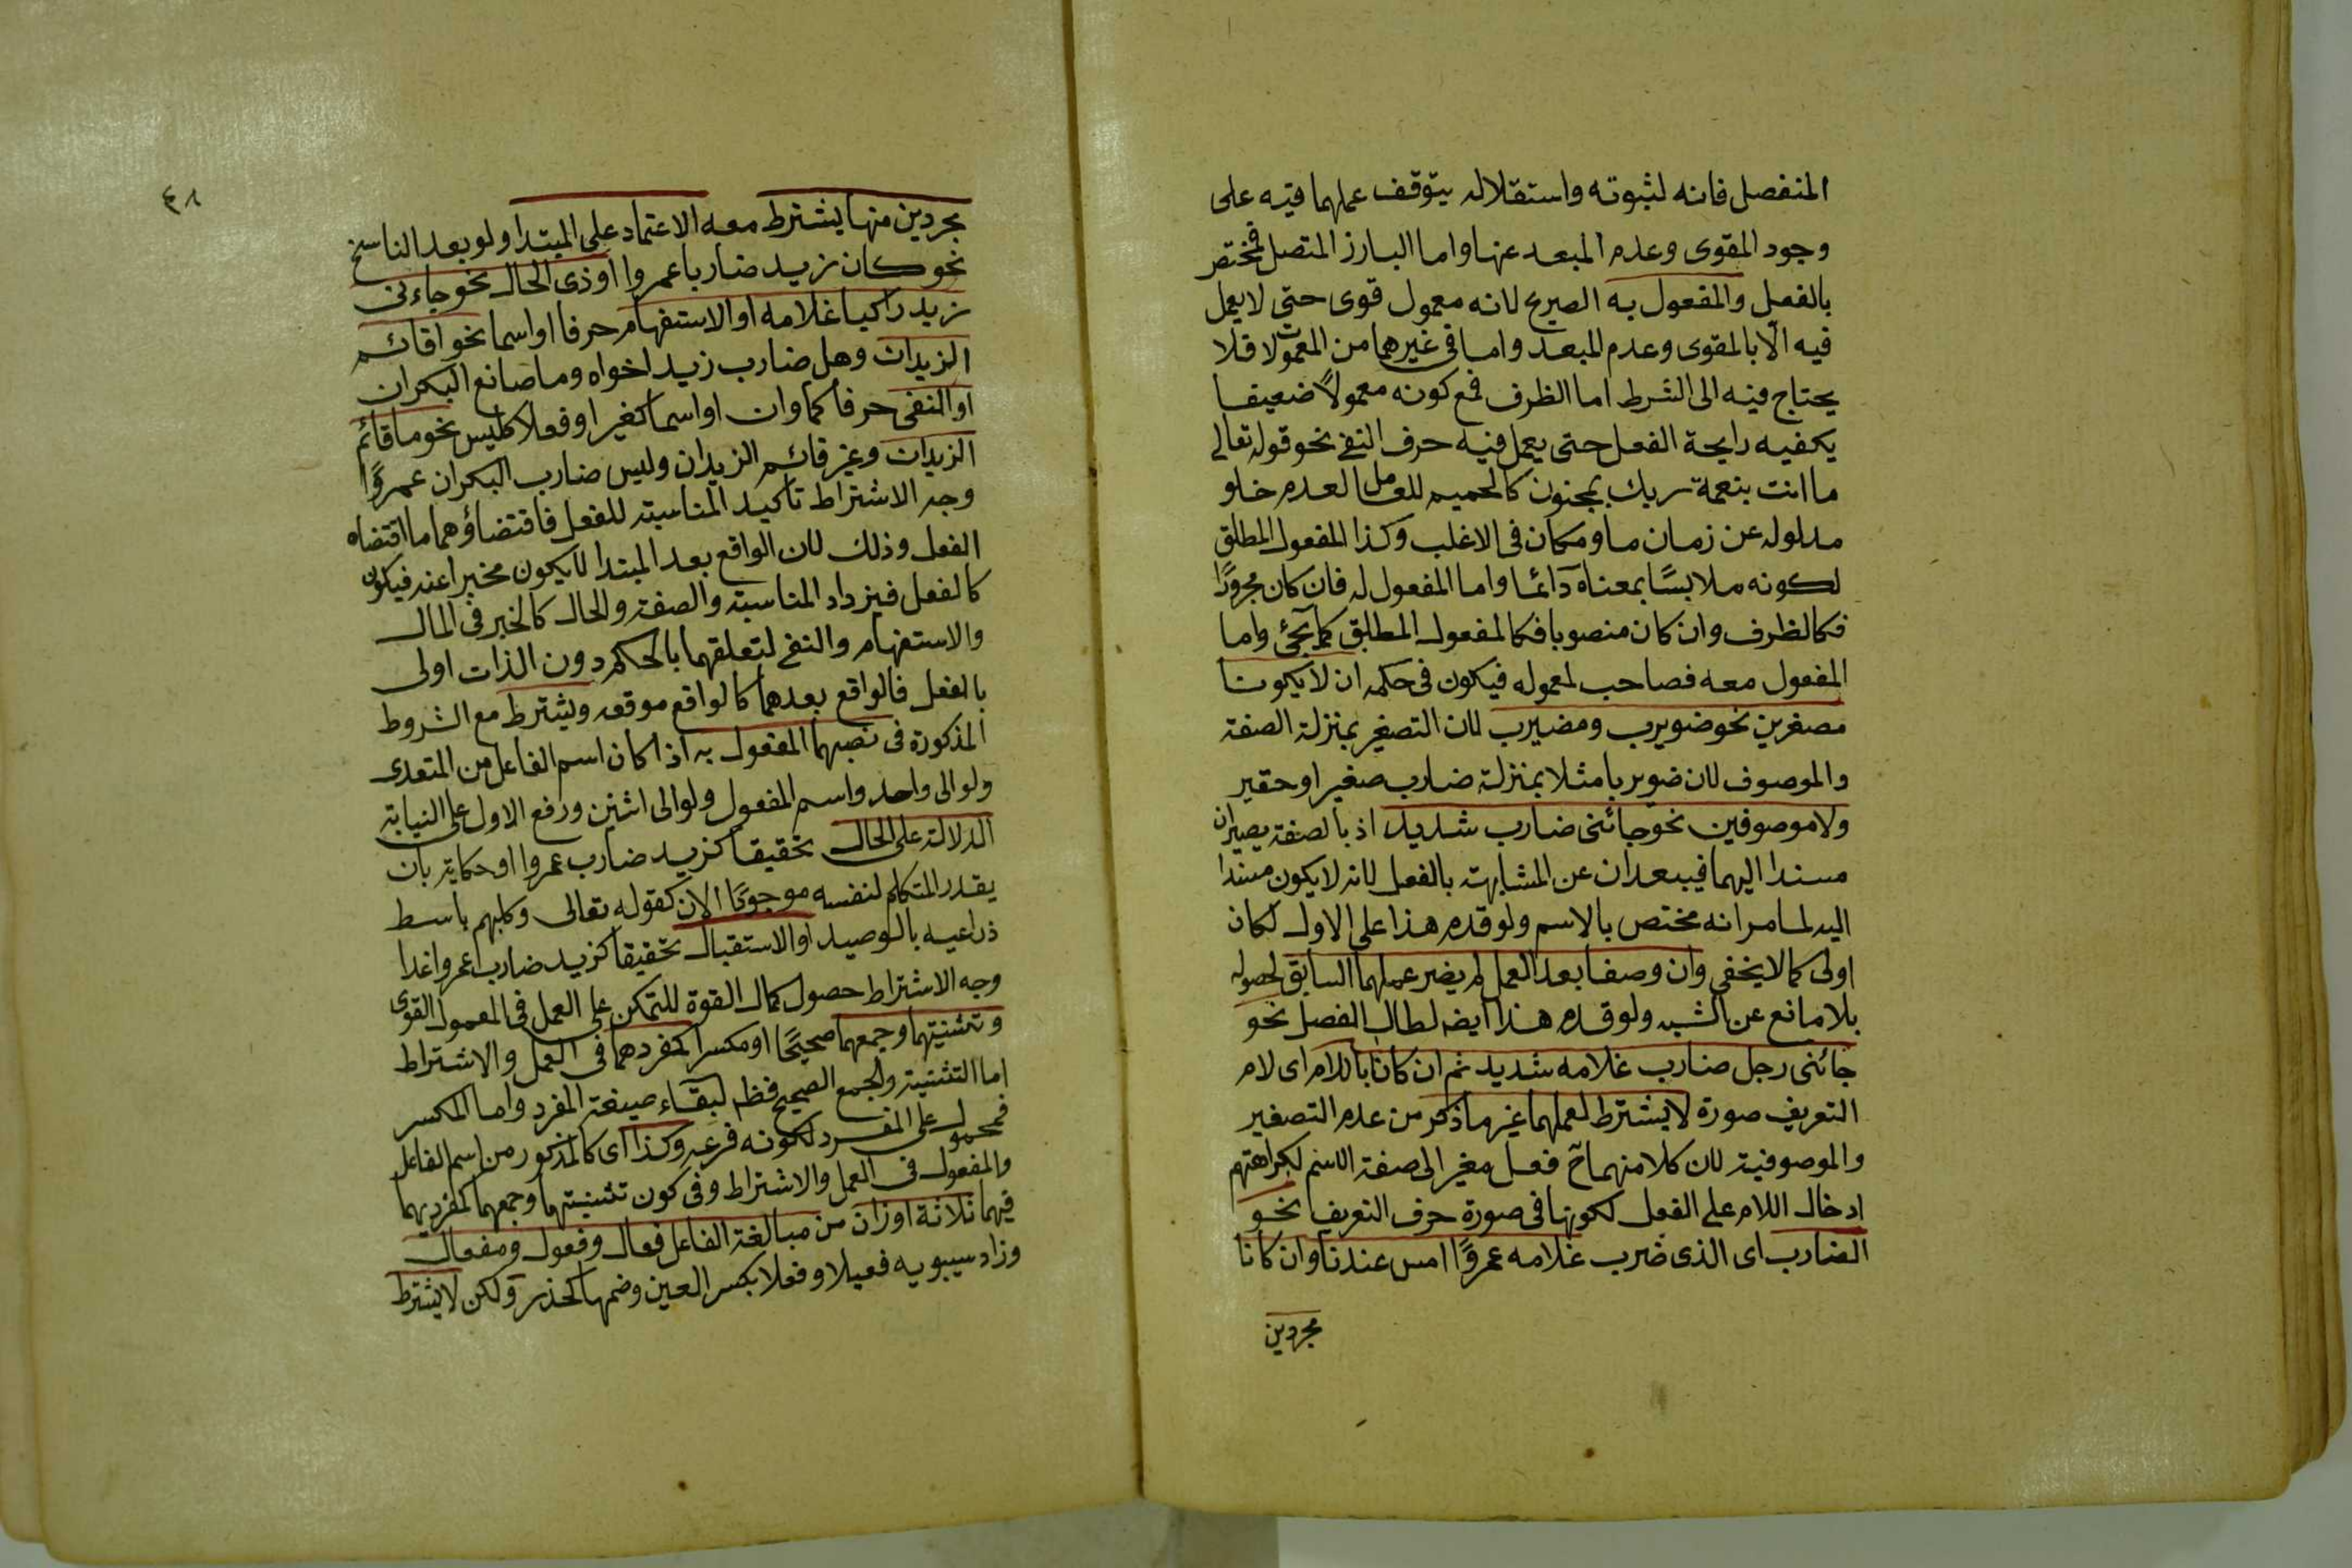 المنفصل فانه لثبوته واستقلاله يتوقف عملهما فيه على
وجود المقوى وعدم المبعد عنها واما البارز المتصل فمختصر
بالفعل والمفعول به الصريح لانه معمول قوى حتى لا يعمل
فيه الا بالمقوى وعدم المبعد واما فى غيرهما من المعمولات فلا
يحتاج فيه الى الشرط اما الظرف فمع كونه معمولاً ضعيفا
يكفيه رايحة الفعل حتى يعمل فيه حرف النفى نحو قوله تعالى
ما انت بنعمة ربك بمجنون كالحميم للعامل لعدم خلو
مدلوله عن زمان ما ومكان فى الاغلب وكذا المفعول المطلق
لكونه ملابسًا بمعناه دآئما واما المفعول له فان كان مجرورًا
فكالظرف وان كان منصوبا فكالمفعول المطلق كما يجئ واما
المفعول معه فصاحب لمعموله فيكون فى حكمه ان لا يكونا
مصغرين نحو ضويرب ومضيرب لان التصغير بمنزلة الصفة
والموصوف لان ضويربا مثلا بمنزلة ضارب صغير او حقير
ولا موصوفين نحو جائنى ضارب شديد اذ بالصفة يصيران
مسندا اليهما فيبعدان عن المشابهة بالفعل لانه لا يكون مسندا
اليه لما مر انه مختص بالاسم ولو قدم هذا على الاول لكان
اولى كما لا يخفى وان وصفا بعد العمل لم يضر عملهما السابق لحصوله
بلا مانع عن الشبه ولو قدم هذا ايضا لطال الفصل نحو
جائنى رجل ضارب غلامه شديد ثم ان كانا باللام اى لام
التعريف صورة لا يشترط لعملهما غير ما ذكر من عدم التصغير
والموصوفية لان كلا منهما ح فعل مغير الى صفة الاسم لكراهتهم
ادخال اللام على الفعل لكونها فى صورة حرف التعريف نحو
الضارب اى الذى ضرب غلامه عمروًا امس عندنا وان كانا
مجردين
٤١
مجردين منها يشترط معه الاعتماد على المبتدا ولو بعد الناسخ
نحو كان زيد ضاربا عمروا او ذى الحال نحو جاءنى
زيد راكبا غلامه او الاستفهام حرفا او اسما نحو اقائم
الزيدان وهل ضارب زيد اخواه وما صانع البكران
او النفى حرفا كما وان او اسما كغير او فعلا كليس نحو ما قائم
الزيدان وغير قائم الزيدان وليس ضارب البكران عمروًا
وجه الاشتراط تأكيد المناسبة للفعل فاقتضاؤهما ما اقتضاه
الفعل وذلك لان الواقع بعد المبتدا لا يكون مخبرا عنه فيكون
كالفعل فيزداد المناسبة والصفة والحال كالخبر فى المال
والاستفهام والنفى لتعلقهما بالحكم دون الذات اولى
بالفعل فالواقع بعدهما كالواقع موقعه ويشترط مع الشروط
المذكورة فى نصبهما المفعول به اذا كان اسم الفاعل من المتعدى
ولو الى واحد واسم المفعول ولو الى اثنين ورفع الاول على النيابة
الدلالة على الحال تحقيقا كزيد ضارب عمروا او حكاية بان
يقدر المتكلم لنفسه موجودًا الان كقوله تعالى وكلبهم باسط
ذراعيه بالوصيد او الاستقبال تحقيقا كزيد ضارب عمروا غدا
وجه الاشتراط حصول كمال القوة للتمكن على العمل فى المعمول القوى
وتثنيتهما وجمعهما صحيحًا او مكسرا كمفردهما فى العمل والاشتراط
اما التثنية والجمع الصحيح فظ لبقاء صيغة المفرد واما المكسر
فمحمول على المفرد لكونه فرعه وكذا اى كالمذكور من اسم الفاعل
والمفعول فى العمل والاشتراط وفى كون تثنيتهما وجمعهما كمفرديهما
فيهما ثلاثة اوزان من مبالغة الفاعل فعال وفعول ومفعال
وزاد سيبويه فعيلا وفعلا بكسر العين وضمها كحذر ولكن لا يشترط